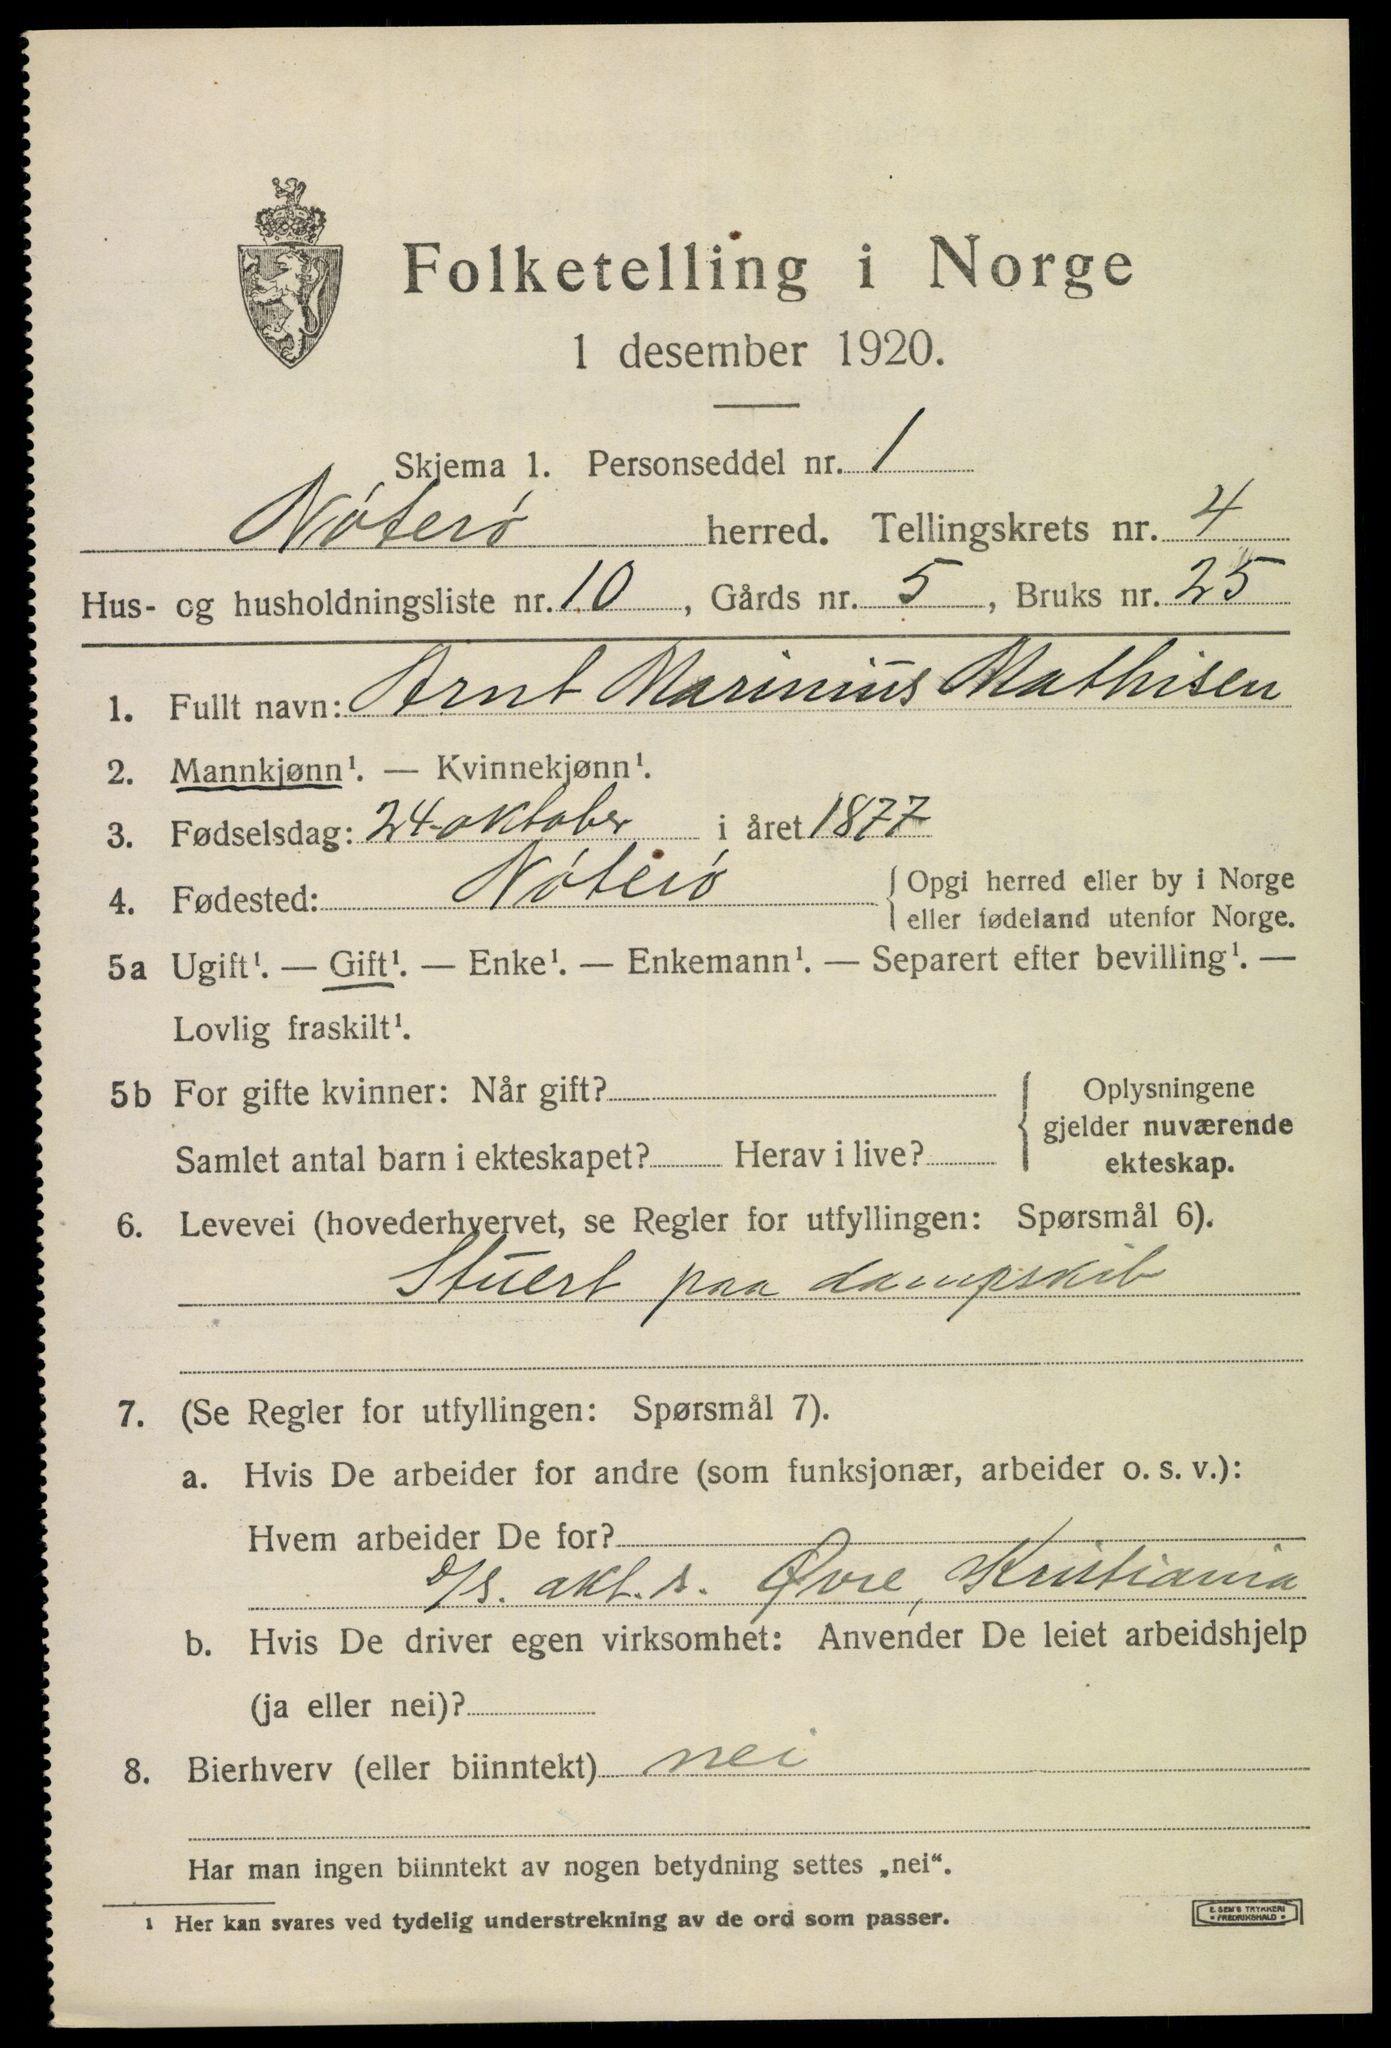 Folketelling i Norge
1 desember 1920.
Skjema 1. Personseddel nr. 1
Nøterø herred. Tellingskrets nr. 4
Hus- og husholdningsliste nr. 10, Gårds nr. 5, Bruks nr. 25
1. Fullt navn: Arnt Marinius Mathisen
2. Mannkjønn¹. — Kvinnekjønn¹.
3. Fødselsdag: 24-oktober i året 1877
4. Fødested: Nøterø { Opgi herred eller by i Norge
eller fødeland utenfor Norge.
5a Ugift¹. — Gift¹. — Enke¹. — Enkemann¹. — Separert efter bevilling¹. —
Lovlig fraskilt¹.
5b For gifte kvinner: Når gift? { Oplysningene
gjelder nuværende
Samlet antal barn i ekteskapet? Herav i live? ekteskap.
6. Levevei (hovederhvervet, se Regler for utfyllingen: Spørsmål 6).
Stuert paa dampskib
7. (Se Regler for utfyllingen: Spørsmål 7).
a. Hvis De arbeider for andre (som funksjonær, arbeider o. s. v.):
Hvem arbeider De for?
D/S. akt. s. Øvre, Kristiania
b. Hvis De driver egen virksomhet: Anvender De leiet arbeidshjelp
(ja eller nei)?
8. Bierhverv (eller biinntekt) nei
Har man ingen biinntekt av nogen betydning settes „nei“.
¹ Her kan svares ved tydelig understrekning av de ord som passer.
E. SEM'S TRYKKERI
• FREDRIKSHALD •